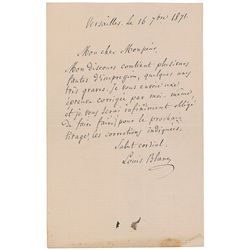 Versailles, le 16 7bre 1871.
Mon cher Monsieur,
Mon discours contient plusieurs
fautes d'impression, quelques unes
très graves. Je vous envoie une
épreuve corrigée par moi-même,
et je vous serai infiniment obligé
de faire faire, pour le prochain
tirage, les corrections indiquées.
Salut cordial.
Louis Blanc